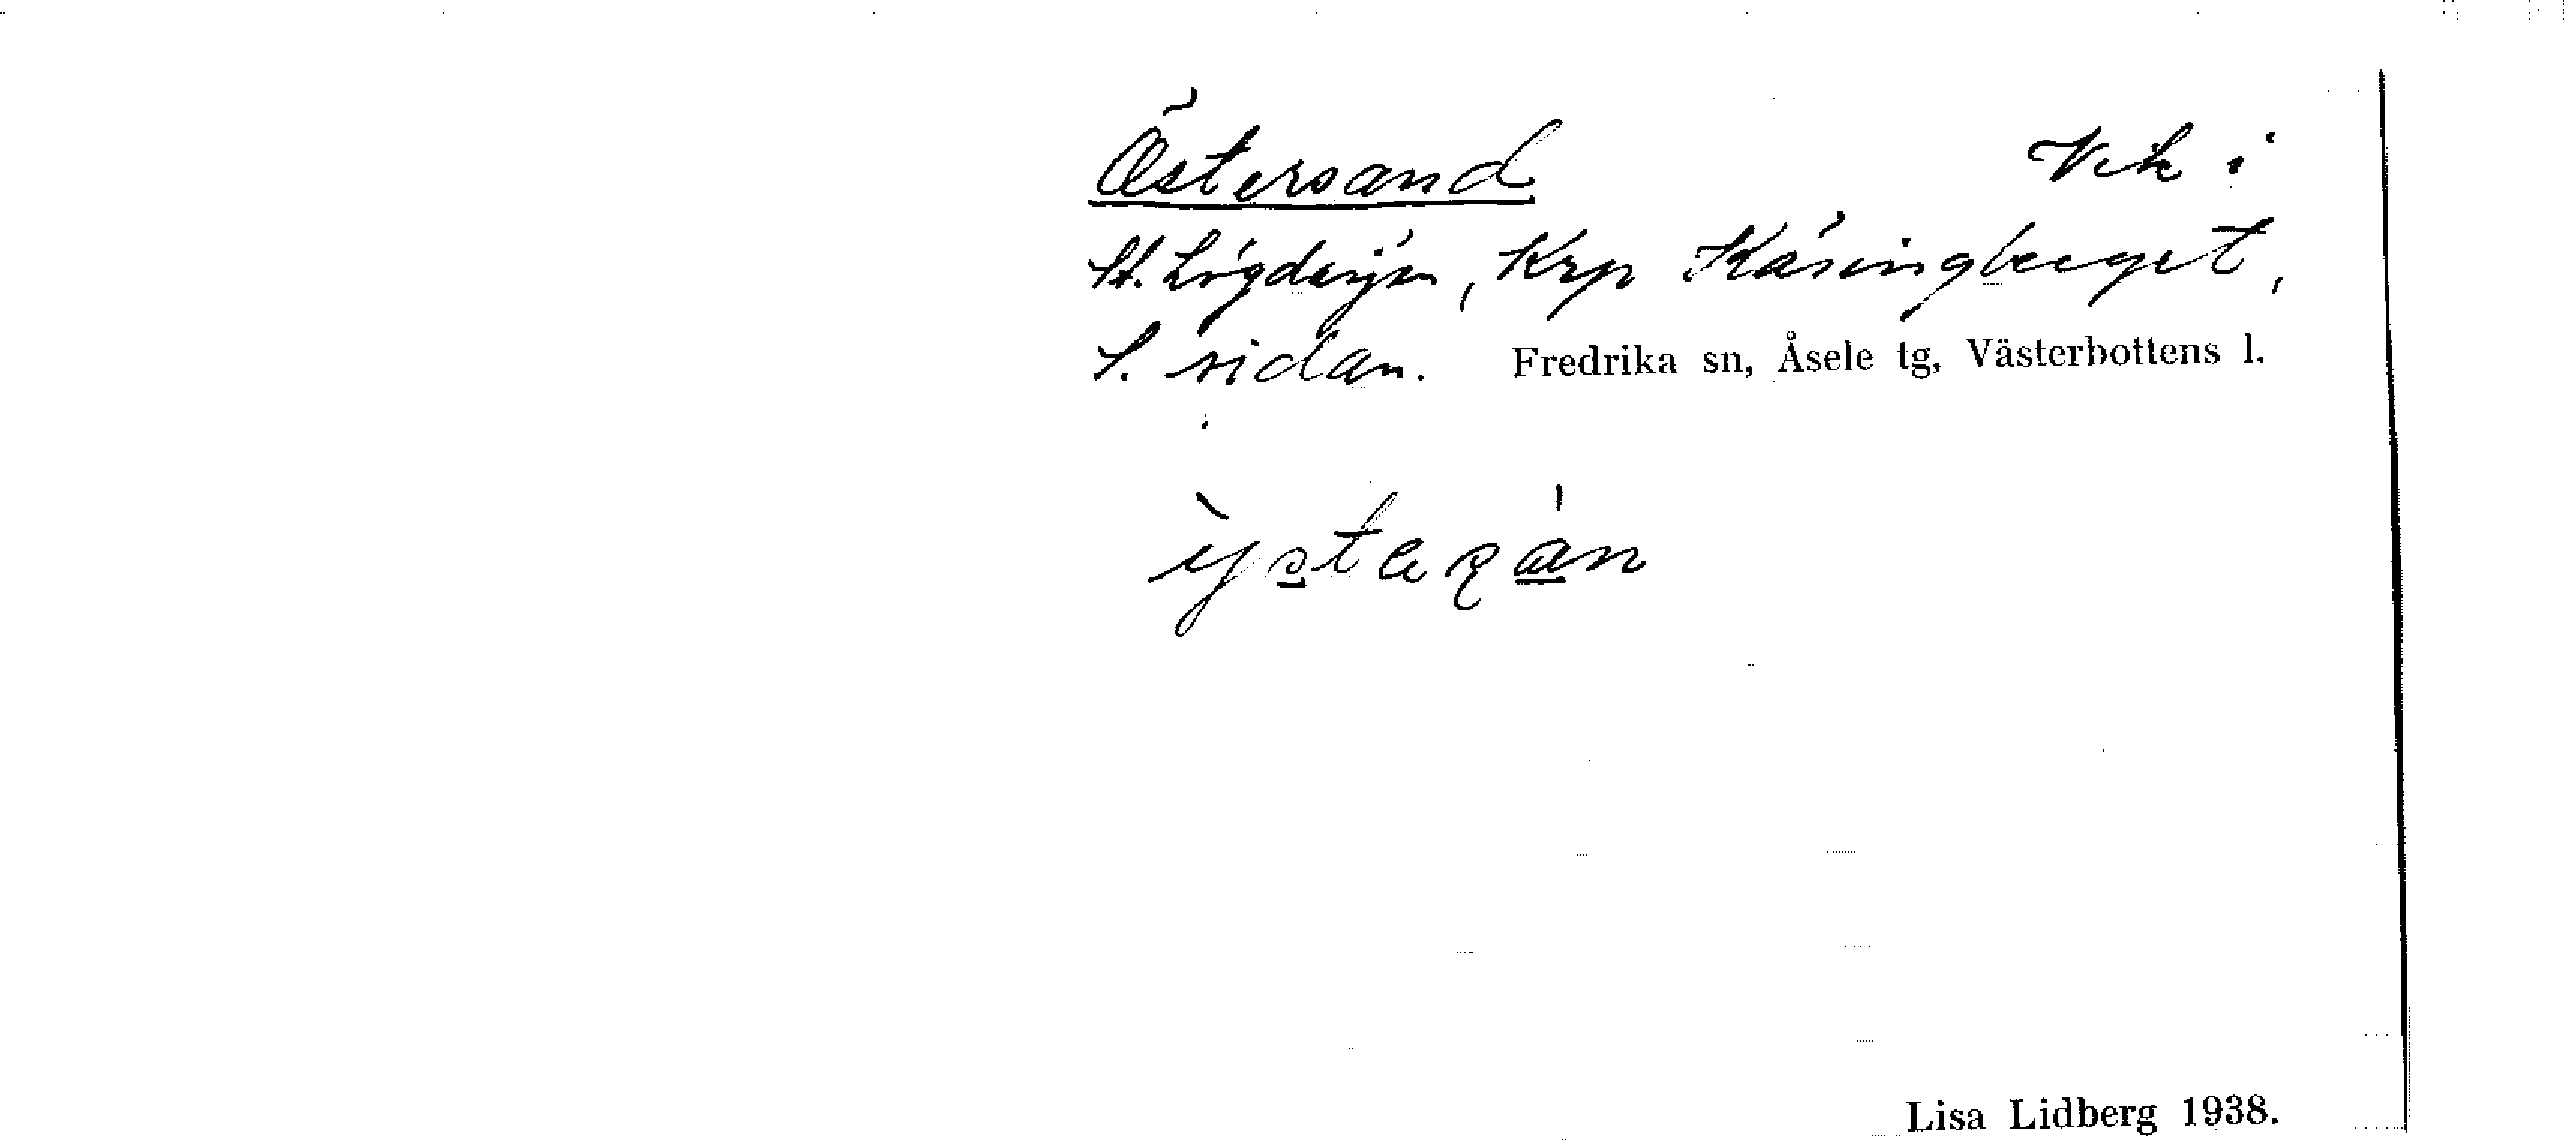 Östersand Vik i
St. Lögdasjön, Krp Käringberget,
S. sidan. Fredrika sn, Åsele tg, Västerbottens l.
Lisa Lidberg 1938.